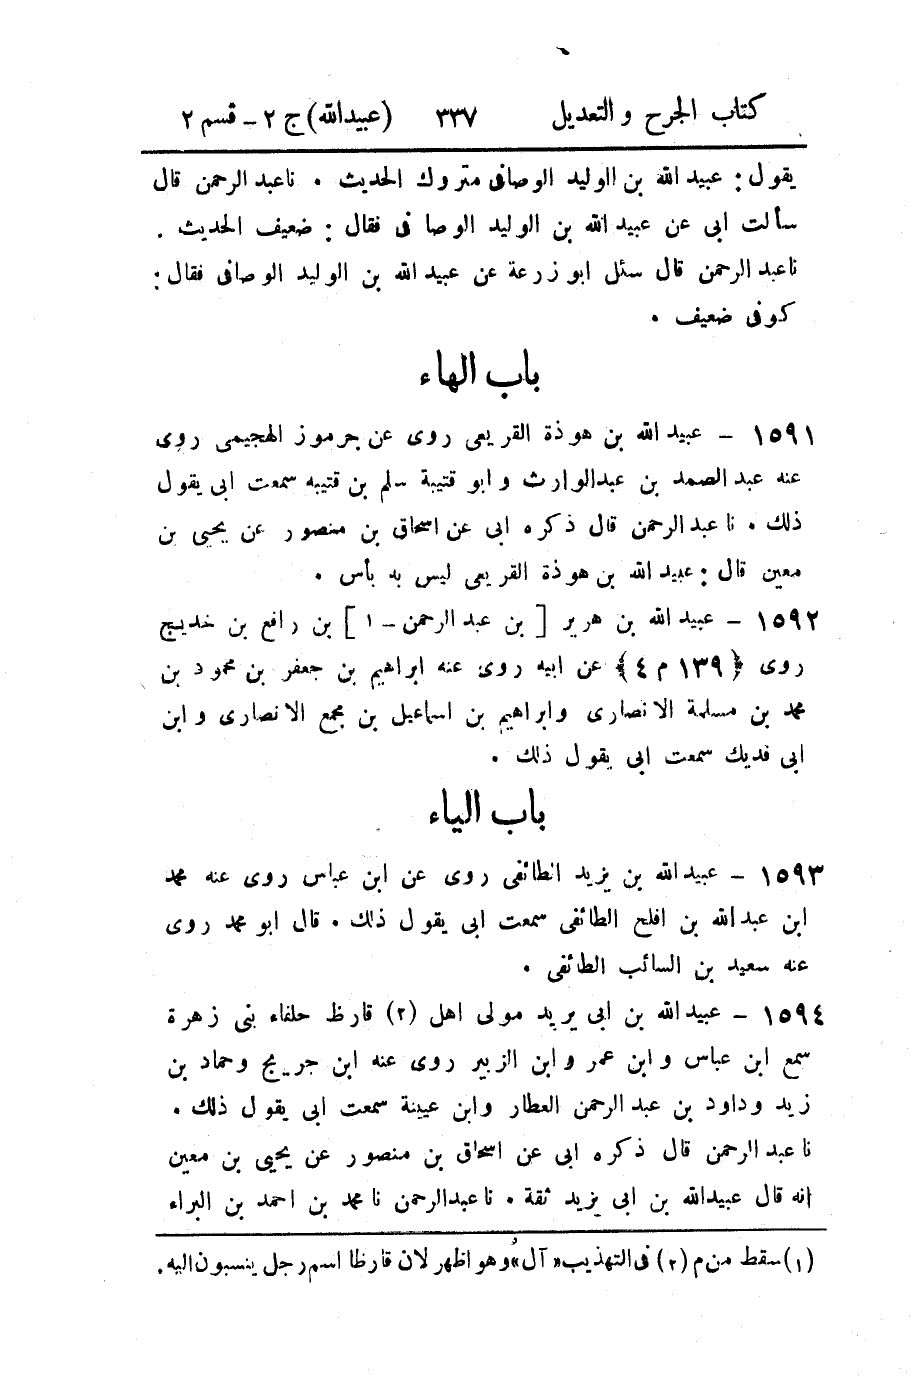 كتاب الجرح والتعديل ٣٣٧ (عبيدالله) ج ٢ - قسم ٢
يقول: عبيد الله بن الوليد الوصافى متروك الحديث . نا عبد الرحمن قال
سألت ابى عن عبيد الله بن الوليد الوصافى فقال : ضعيف الحديث .
نا عبد الرحمن قال سئل ابو زرعة عن عبيد الله بن الوليد الوصافى فقال :
كوفى ضعيف .
باب الهاء
١٥٩١ - عبيد الله بن هوذة القريعى روى عن جرموز الهجيمى روى
عنه عبد الصمد بن عبدالوارث و ابو قتيبة سلم بن قتيبه سمعت ابى يقول
ذلك . نا عبد الرحمن قال ذكره ابى عن اسحاق بن منصور عن يحيى بن
معين قال : عبيد الله بن هوذة القريعى ليس به بأس .
١٥٩٢ - عبيد الله بن هرير [ بن عبد الرحمن - ١ ] بن رافع بن خديج
روى ﴿١٣٩ م ٤﴾ عن ابيه روى عنه ابراهيم بن جعفر بن محمود بن
محمد بن مسلمة الانصارى وابراهيم بن اسماعيل بن مجمع الانصارى وابن
ابى فديك سمعت ابى يقول ذلك .
باب الياء
١٥٩٣ - عبيد الله بن يزيد الطائفى روى عن ابن عباس روى عنه محمد
ابن عبد الله بن افلح الطائفى سمعت ابى يقول ذلك . قال ابو محمد روى
عنه سعيد بن السائب الطائفى .
١٥٩٤ - عبيد الله بن ابى يزيد مولى اهل (٢) قارظ حلفاء بنى زهرة
سمع ابن عباس وابن عمر وابن الزبير روى عنه ابن جريج وحماد بن
زيد وداود بن عبد الرحمن العطار وابن عيينة سمعت ابى يقول ذلك .
نا عبد الرحمن قال ذكره ابى عن اسحاق بن منصور عن يحيى بن معين
انه قال عبيدالله بن ابى يزيد ثقة . نا عبدالرحمن نا محمد بن احمد بن البراء
(١) سقط من م (٢) فى التهذيب « آل » وهو اظهر لان قارظا اسم رجل ينسبون اليه .